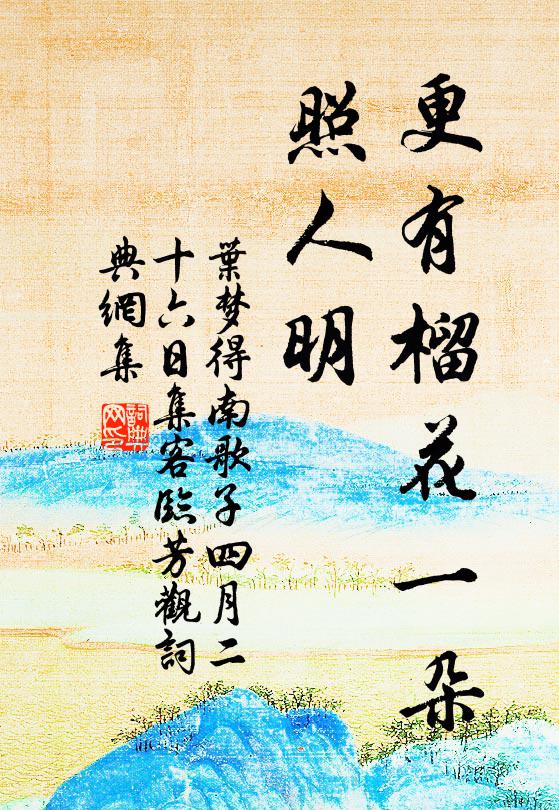 更有榴花一朵
照人明
葉梦得南歌子四月二
十六日集客臨芳觀詞
典網集
詞典
网印